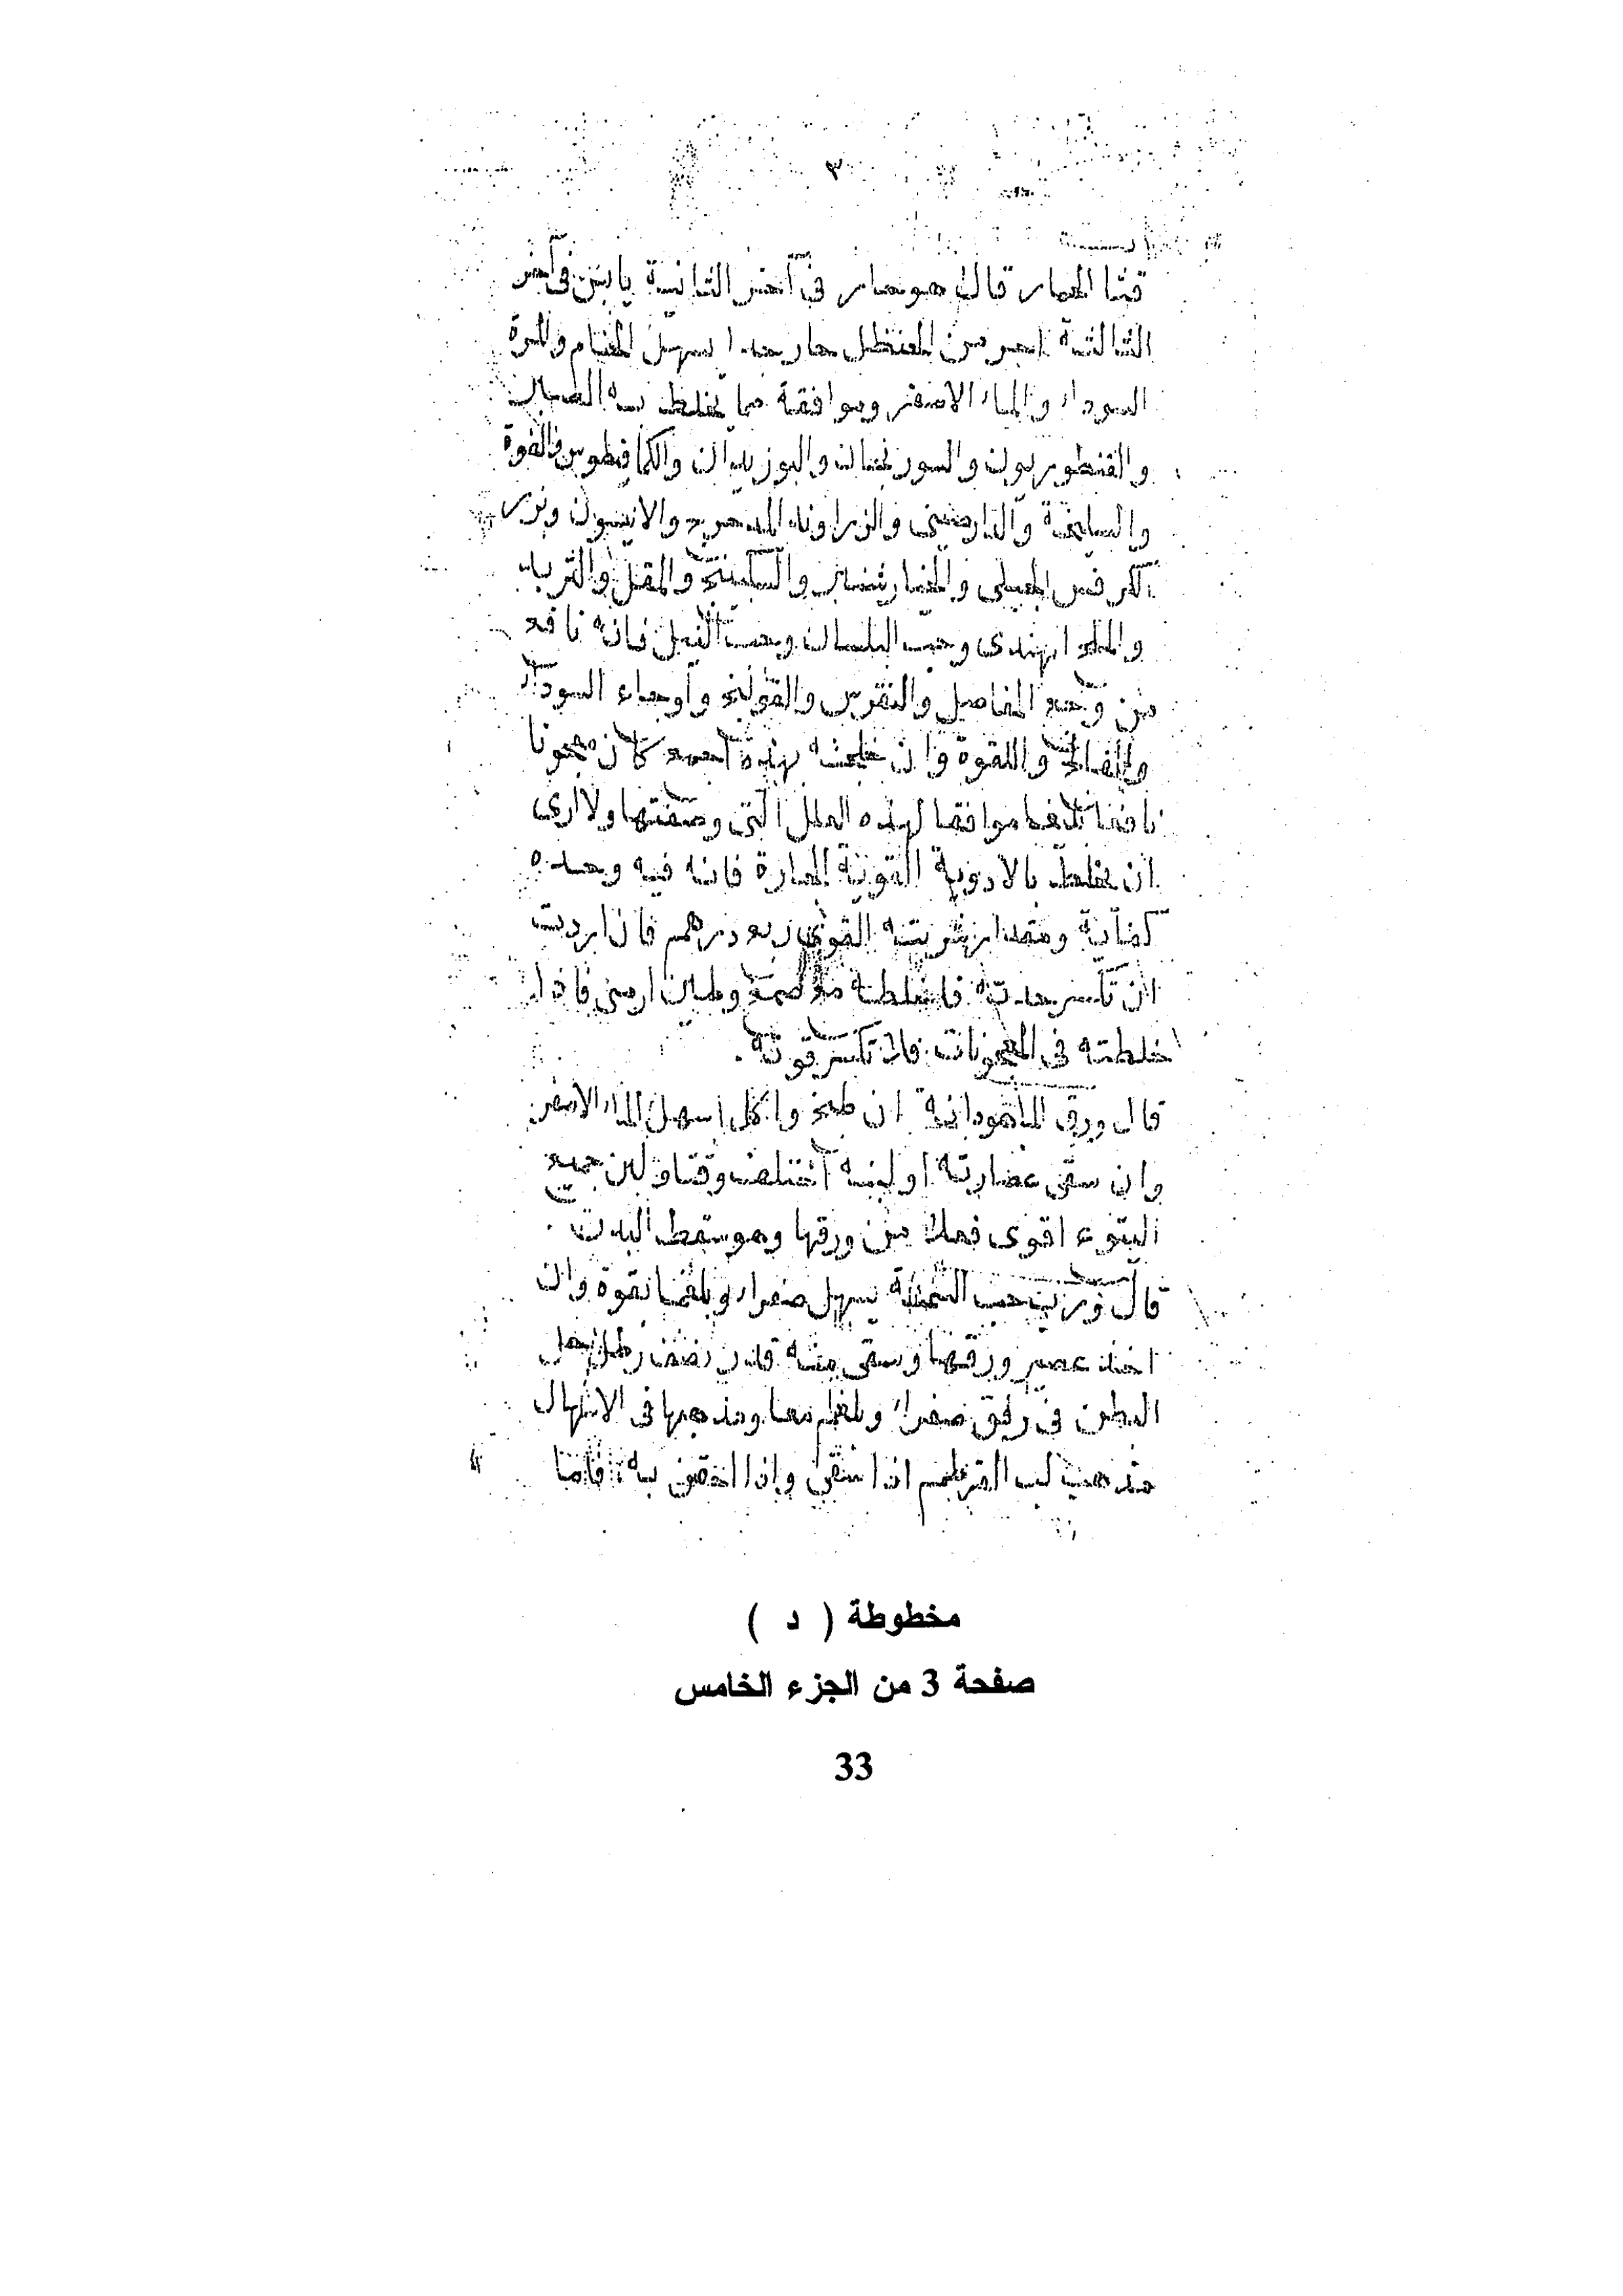 ٣
قثا الحمار قال هو حار فى آخر الثانية يابس فى آخر
الثالثة احر من الحنظل حار جدا يسهل الخام والمرة
السوداء والماء الاصفر وموافقة مما يخلط به الصبر
والقنطوريون والسورنجان والبوزيدان والكمافيطوس والفوة
والسليخة والدارصينى والزراوند المدحرج والانيسون وبزر
الكرفس الجبلى والسكبينج والمقل والتربد
والملح الهندى وحب البلسان وحب النيل فانه نافع
من وجع المفاصل والنقرس والقولنج واوجاع السوداء
والفالج واللقوة وان خلطته بهذه اجمع كان معجونا
نافعا موافقا لهذه العلل التى وصفتها ولا ارى
ان يخلط بالادوية القوية الحارة فانه فيه وحده
كفاية ومقدار شربته القوى ربع درهم فان اردت
ان تكسر حدته فاخلطه مع صمغ وطين ارمنى فاذا
خلطته فى المعجونات فلا تكسر قوته
قال ورق الماهودانة ان طبخ واكل اسهل الماء الاصفر
وان سقى عصارته او لبنه اختلف وقتا ولبن جميع
اليتوع اقوى فعلا من ورقها وهو يسقط البدن
قال وزيت حب السمنة يسهل صفراء وبلغما بقوة وان
اخذ عصير ورقها وسقى منه قدر نصف رطل حل
البطن فى رفق صفراء وبلغم معا ومذهبها فى الاسهال
مذهب لب القرطم اذا سقى واذا احتقن به فاما
مخطوطة ( د )
صفحة 3 من الجزء الخامس
33